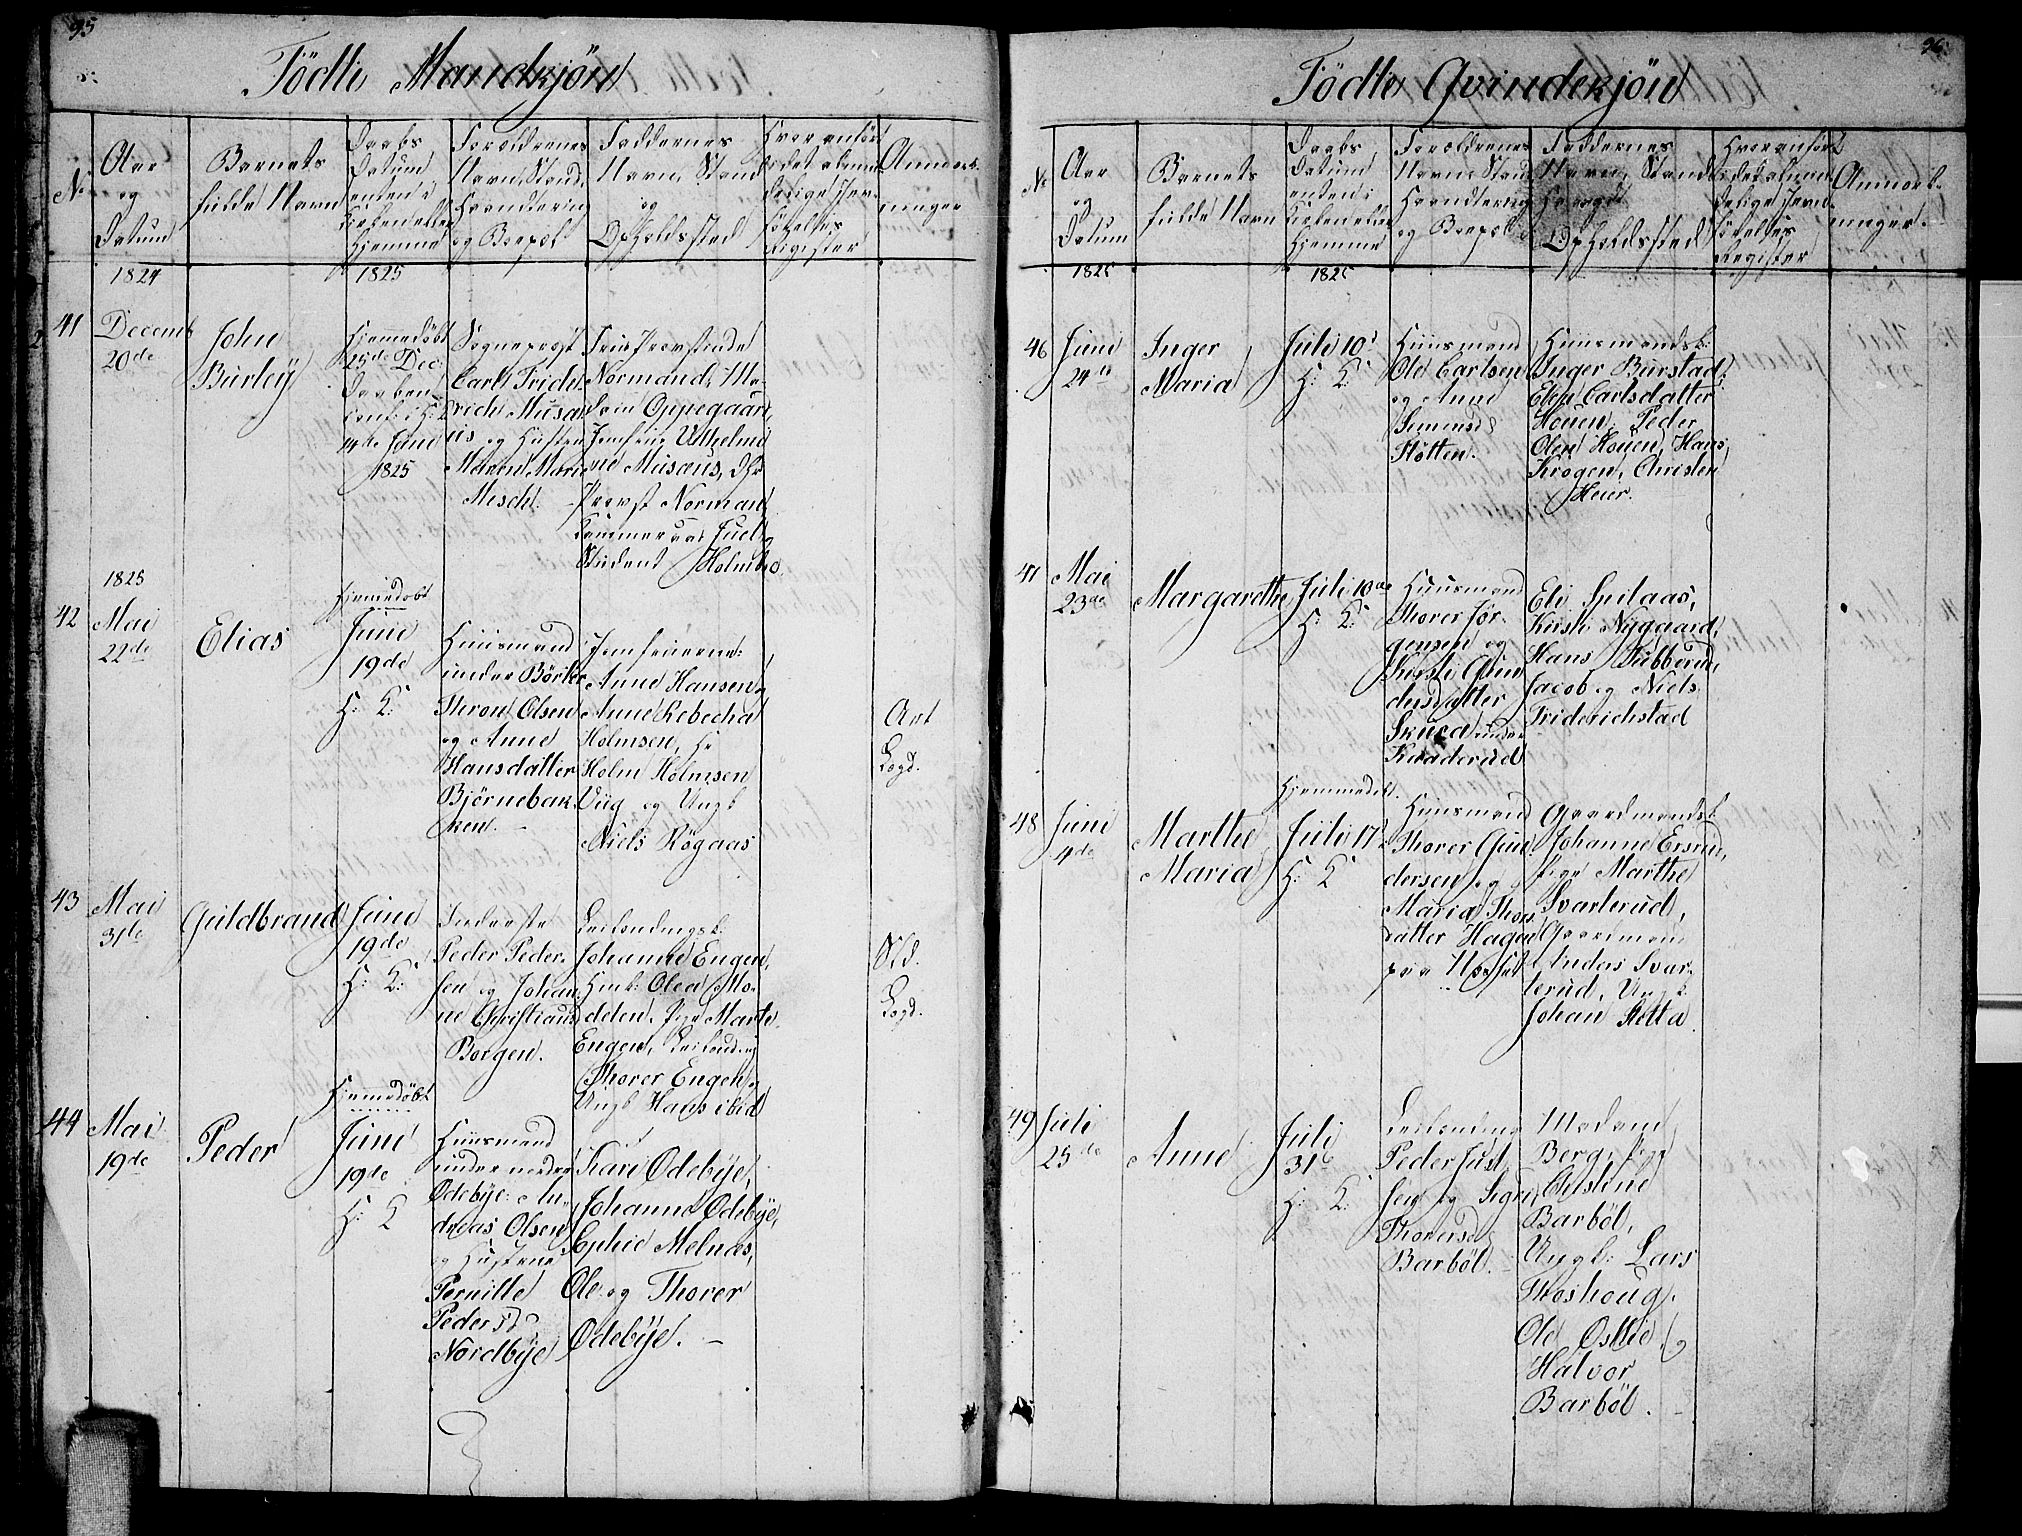 95
Födte Mandkjön
No
Aar
og
Datum
Barnets
fulde Navn
Daabs
Datum
enten i
Kirken eller
Hjemme
Forældrenes
Navn, Stand,
Haandtering
og Boepæl
Faddernes
Navn, Stand
og
Opholdssted
Hvor anfört
i det almin-
delige Jevn-
förelses
Register
Anmærk-
ninger
1824
1825
41
Decemb
20de
John
Burley
Hjemmedöbt
25de Dec
Daaben
conf: H: K
14de Juni
1825
Sogneprest
Carl Frid-
rich Musæ-
us og Hustru
Maren Marie
Mesch.
Frue Provstinde
Normand, Ma-
dam Oppegaard,
Jomfrue Vilhelmi-
ne Musæus, Hr
Provst Normand
Kammerraad Juel og
Student Holmboe.
1825
42
Mai
22de
Elias
Hjemmedöbt
Juni
19de
H: K:
Huusmand
under Börke
Thron Olsen
og Anne
Hansdatter
Björnebak-
ken.
Jomfruerne:
Anne Hansen og
Anne Rebecha
Holmsen, Hr
Holm Holmsen
Viig og Ungk
Niels Rögaas
Ant
Logd.
43
Mai
31te
Guldbrand
Juni
19de
H: K:
Inderste
Peder Peder-
sen og Johan-
ne Christiansd
Borgen.
Leilendingsk:
Johanne Engen,
Enk: Olea Mo-
delen. Pige Marte
Engen, Leilending
Thorer Engen og
Ungk Hans ibid
Sld.
Logd.
44
Mai
19de
Peder
Hjemmedöbt
Juni
19de
H: K
Huusmand
under nedre
Odebye: An-
dreas Olsen
og Hustrue
Pernille
Pedersd
Nordbye
Kari Odebye,
Johanne Odebye,
Sophie Melnæs,
Ole og Thorer
Odebye.
96
Födte Qvindekjön
No
Aar
og
Datum
Barnets
fulde Navn
Daabs
Datum
enten i
Kirken eller
Hjemme
Forældrenes
Navn, Stand
Haandtering
og Boepæl
Faddernes
Navn, Stand
og
Opholdssted
Hvor anfört
i det almin-
delige Jevn-
förelses
Register
Anmærk-
ninger.
1825
1825
46
Juni
24de
Inger
Maria
Juli 10de
H: K:
Huusmand
Ole Carlsen
og Anne
Simensd
Stötten.
Huusmandsk:
Inger Burstad,
Eli Carlsdatter
Houen, Peder
Olen Houen, Hans
Krogen, Christen
Heier.
47
Mai
23de
Margarethe
Juli 10de
H: K:
Huusmand
Thorer Jör-
gensen og
Kirsti Gun-
dersdatter
Skura under
Knaderud
Eli Spilaas,
Kirsti Nygaard,
Hans Tubberud,
Jacob og Niels
Friderichstad
48
Juni
4de
Marthe
Maria
Hjemmedöbt.
Juli 17de
H: K
Huusmand
Thorer Gun-
dersen og
Maria Thors-
datter Hagen
paa Horsset
Gaardmandsk
Johanne Ersrud,
Pige Marthe
Svarterud,
Gaardmand
Anders Svar-
terud, Ungk
Johan Stetta
49
Juli
25de
Anne
Juli
31te
H: K:
Leilending
Peder Just-
sen og Sigri
Thorersd
Barböl.
Madam
Berg, Pige
Christine
Barböl,
Ungk: Lars
Thoshoug,
Ole Östlie og
Halvor
Barböl.